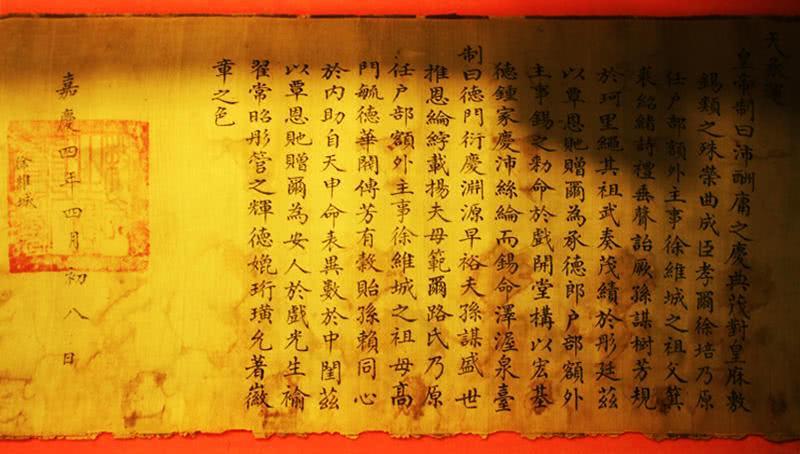 天承運
皇帝制曰沛酬庸之慶典茂對皇庥敷
錫類之殊榮曲成臣孝爾徐培乃原
任户部額外主事徐維城之祖父箕
裘紹緒詩禮垂聲詒厥孫謀樹芳規
於珂里繩其祖武奏茂績於彤廷茲
以覃恩貤贈爾為承德郎户部額外
主事錫之勑命於戲開堂構以宏基
德鍾家慶沛絲綸而錫命澤渥泉臺
制曰德門衍慶淵源早裕夫孫謀盛世
推恩綸綍載揚夫母範爾路氏乃原
任户部額外主事徐維城之祖母高
門毓德華閥傳芳有穀貽孫賴同心
於内助自天申命表異數於中閨茲
以覃恩貤贈爾為安人於戲光生褕
翟常昭彤管之輝德媲珩璜允著徽
章之色
嘉慶四年四月初八日
徐維城